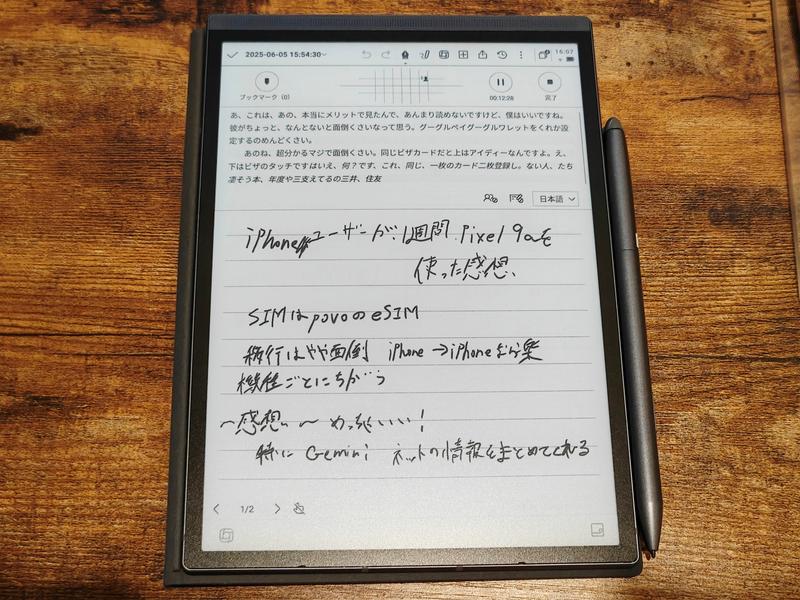 2025-06-05 15:54:30
16:07
ブックマーク (0)
00:12:28
完了
あ、これは、あの、本当にメリットで見たんで、あんまり読めないですけど、僕はいいですね。
彼がちょっと、なんとないと面倒くさいなって思う。グーグルペイグーグルワレットをくれか設
定するのめんどくさい。
あのね、超分かるマジで面倒くさい。同じビザカードだと上はアイディーなんですよ。え、
下はビザのタッチですはいえ、何？です、これ、同じ、一枚のカード二枚登録し。ない人、たち
凄そう本、年度や三支えてるの三井、住友
日本語
iPhoneユーザーが、1週間 Pixel 9aを
使った感想、
SIMはpovoのeSIM
移行はやや面倒 iPhone→iPhoneなら楽
機種ごとにちがう
〜感想〜 めっちゃいい！
特に Gemini ネットの情報をまとめてくれる
1/2